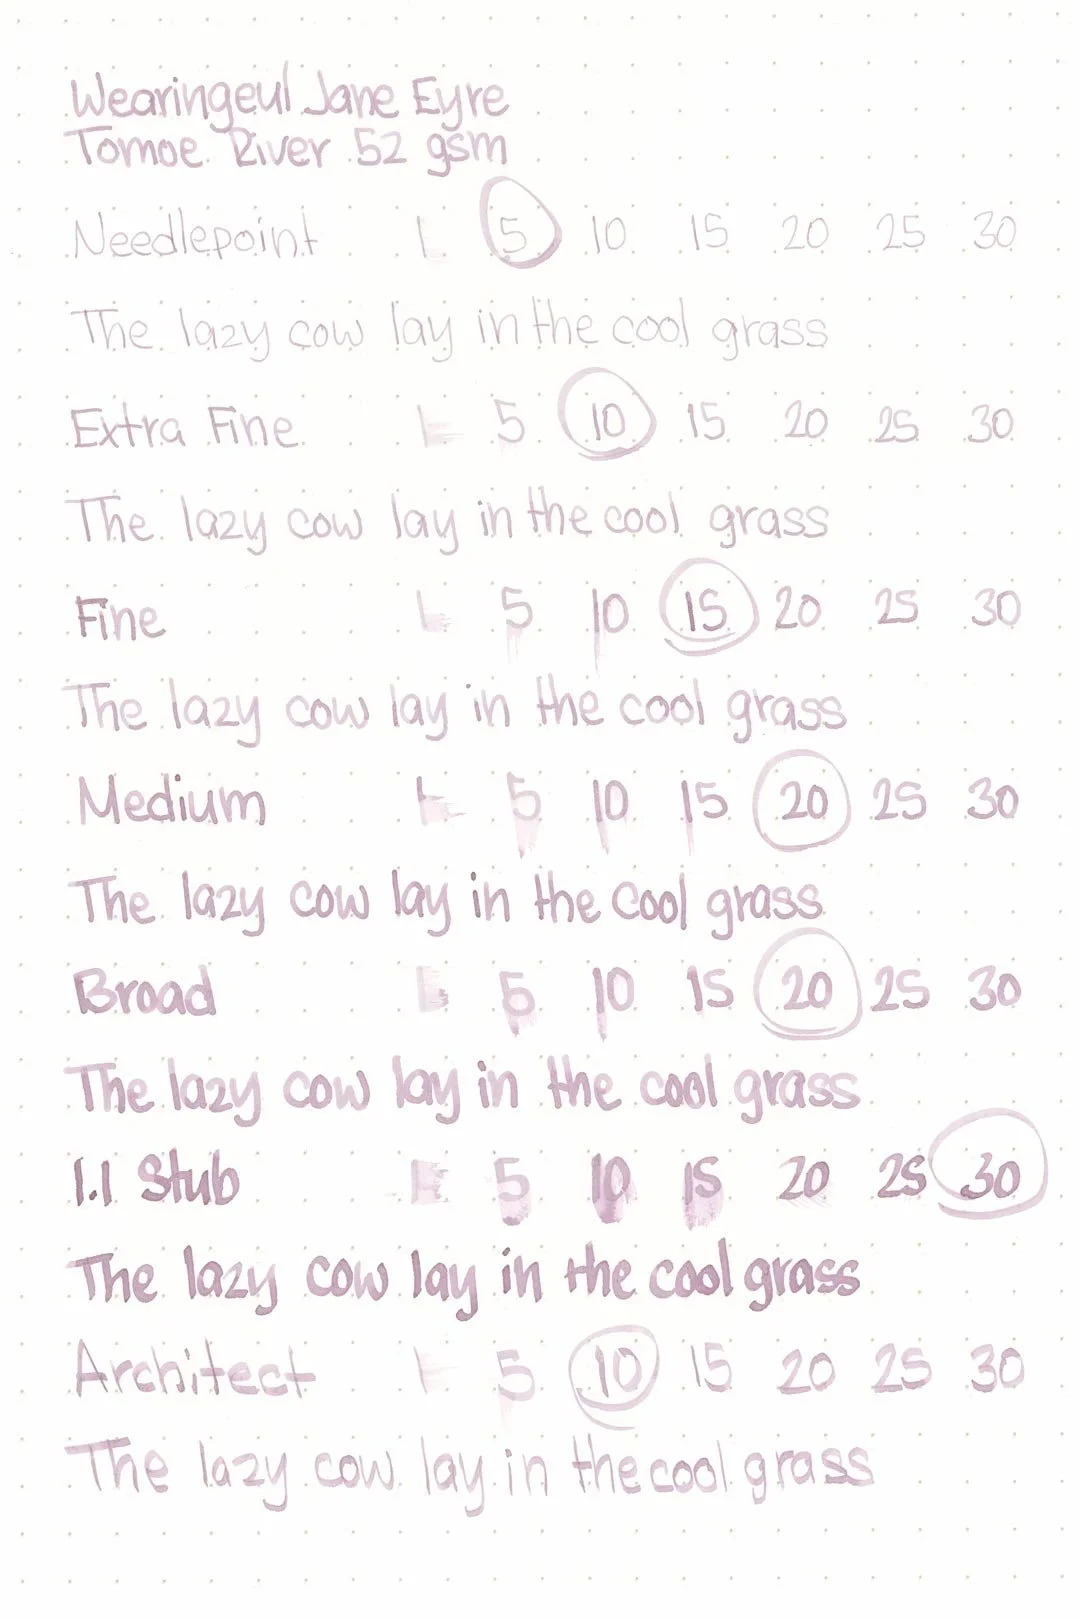 Wearingeul Jane Eyre
Tomoe River 52 gsm
Needlepoint L 5 10 15 20 25 30
The lazy cow lay in the cool grass
Extra Fine L 5 10 15 20 25 30
The lazy cow lay in the cool grass
Fine L 5 10 15 20 25 30
The lazy cow lay in the cool grass
Medium L 5 10 15 20 25 30
The lazy cow lay in the Cool grass
Broad 5 10 15 20 25 30
The lazy cow lay in the cool grass
1.1 Stub 5 10 15 20 25 30
The lazy cow lay in the cool grass
Architect 5 10 15 20 25 30
The lazy cow lay in the cool grass